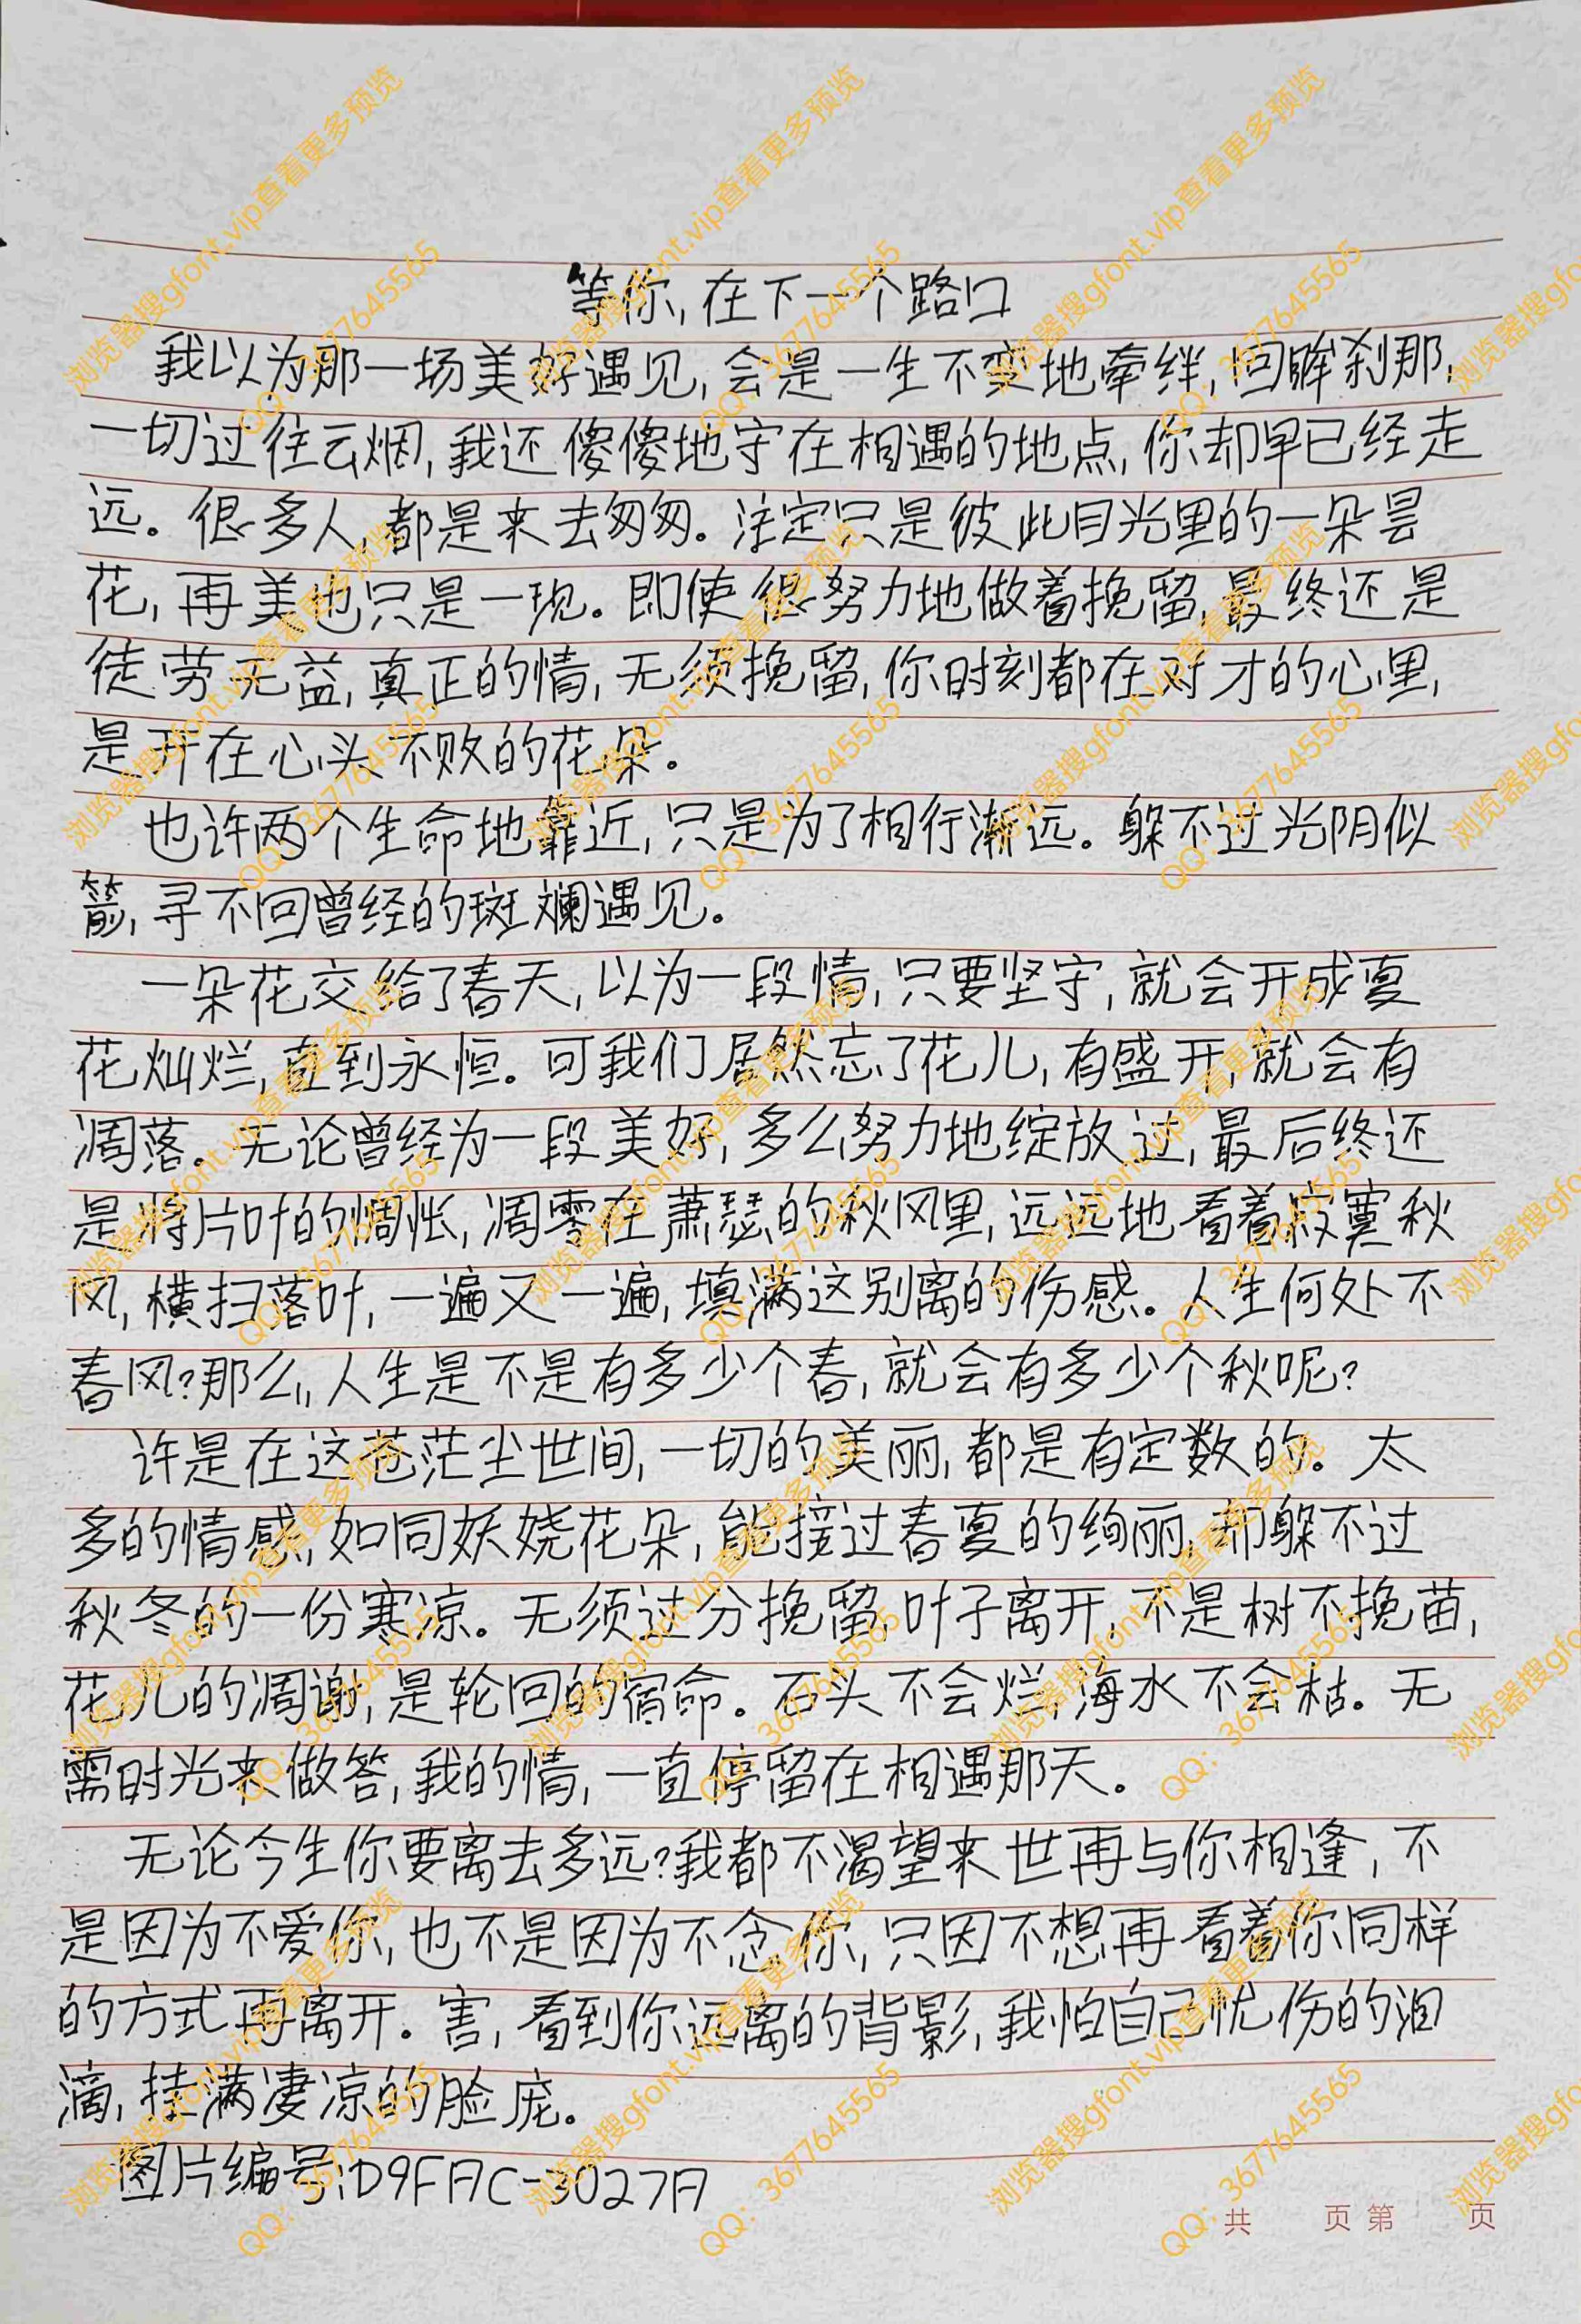 等你,在下一个路口
我以为那一场美好遇见,会是一生不变地牵绊,回眸刹那,
一切过往云烟,我还傻傻地守在相遇的地点,你却早已经走
远。很多人,都是来去匆匆。注定只是彼此目光里的一朵昙
花,再美也只是一现。即使很努力地做着挽留,最终还是
徒劳无益,真正的情,无须挽留,你时刻都在对才的心里,
是开在心头不败的花朵。
也许两个生命地靠近,只是为了相行渐远。躲不过光阴似
箭,寻不回曾经的斑斓遇见。
一朵花交给了春天,以为一段情,只要坚守,就会开成夏
花灿烂,直到永恒。可我们居然忘了花儿,有盛开,就会有
凋落。无论曾经为一段美好,多么努力地绽放过,最后终还
是将片叶的惆怅,凋零在萧瑟的秋风里,远远地看着寂寞秋
风,横扫落叶,一遍又一遍,填满这别离的伤感。人生何处不
春风?那么,,人生是不是有多少个春,就会有多少个秋呢?
许是在这苍茫尘世间,一切的美丽,都是有定数的。太
多的情感,如同妖娆花朵,能接过春夏的绚丽,却躲不过
秋冬的一份寒凉。无须过分挽留,叶子离开,不是树不挽苗,
花儿的凋谢,是轮回的宿命。石头不会烂,海水不会枯。无
需时光来做答,我的情,一直停留在相遇那天。
无论今生你要离去多远?我都不渴望来世再与你相逢,不
是因为不爱你,也不是因为不念你,只因不想再看着你同样
的方式再离开。害,看到你远离的背影,我怕自己忧伤的泪
滴,挂满凄凉的脸庞。
图片编号:D9FAC-3027A
共 页 第 页
浏览器搜gfont.vip查看更多预览
QQ：3677645565